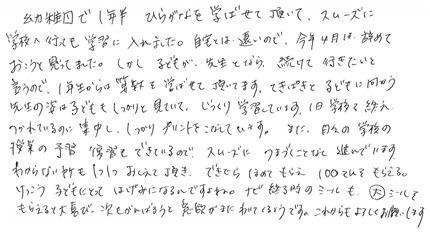 幼稚園で1年半 ひらがなを学ばせて頂いて、スムーズに
学校へ行っても学習に入れました。自宅とは遠いので、今年4月は辞めて
おこうと思ってました。しかし子どもが、先生となら、続けて行きたいと
言うので、1年生からは算数を学ばせて頂いてます。てきぱきと子どもに向かう
先生の姿は子どももしっかりと見ていて、じっくり学習しています。1日学校を終え、
つかれているのに集中し、しっかりプリントをこなしています。また、日々の学校の
授業の予習 復習もできているので、スムーズに つまづくことなく進んでいます。
わからない所も1つ1つおしえて頂き、できたらほめてもらえ100てんもらえる。
けっこう子どもにとってはげみになるんですよね。ナビ終る時のシールも、大シールを
もらえると大喜び、次もがんばろうと意欲がまたわいてくるようです。これからもよろしくお願いします